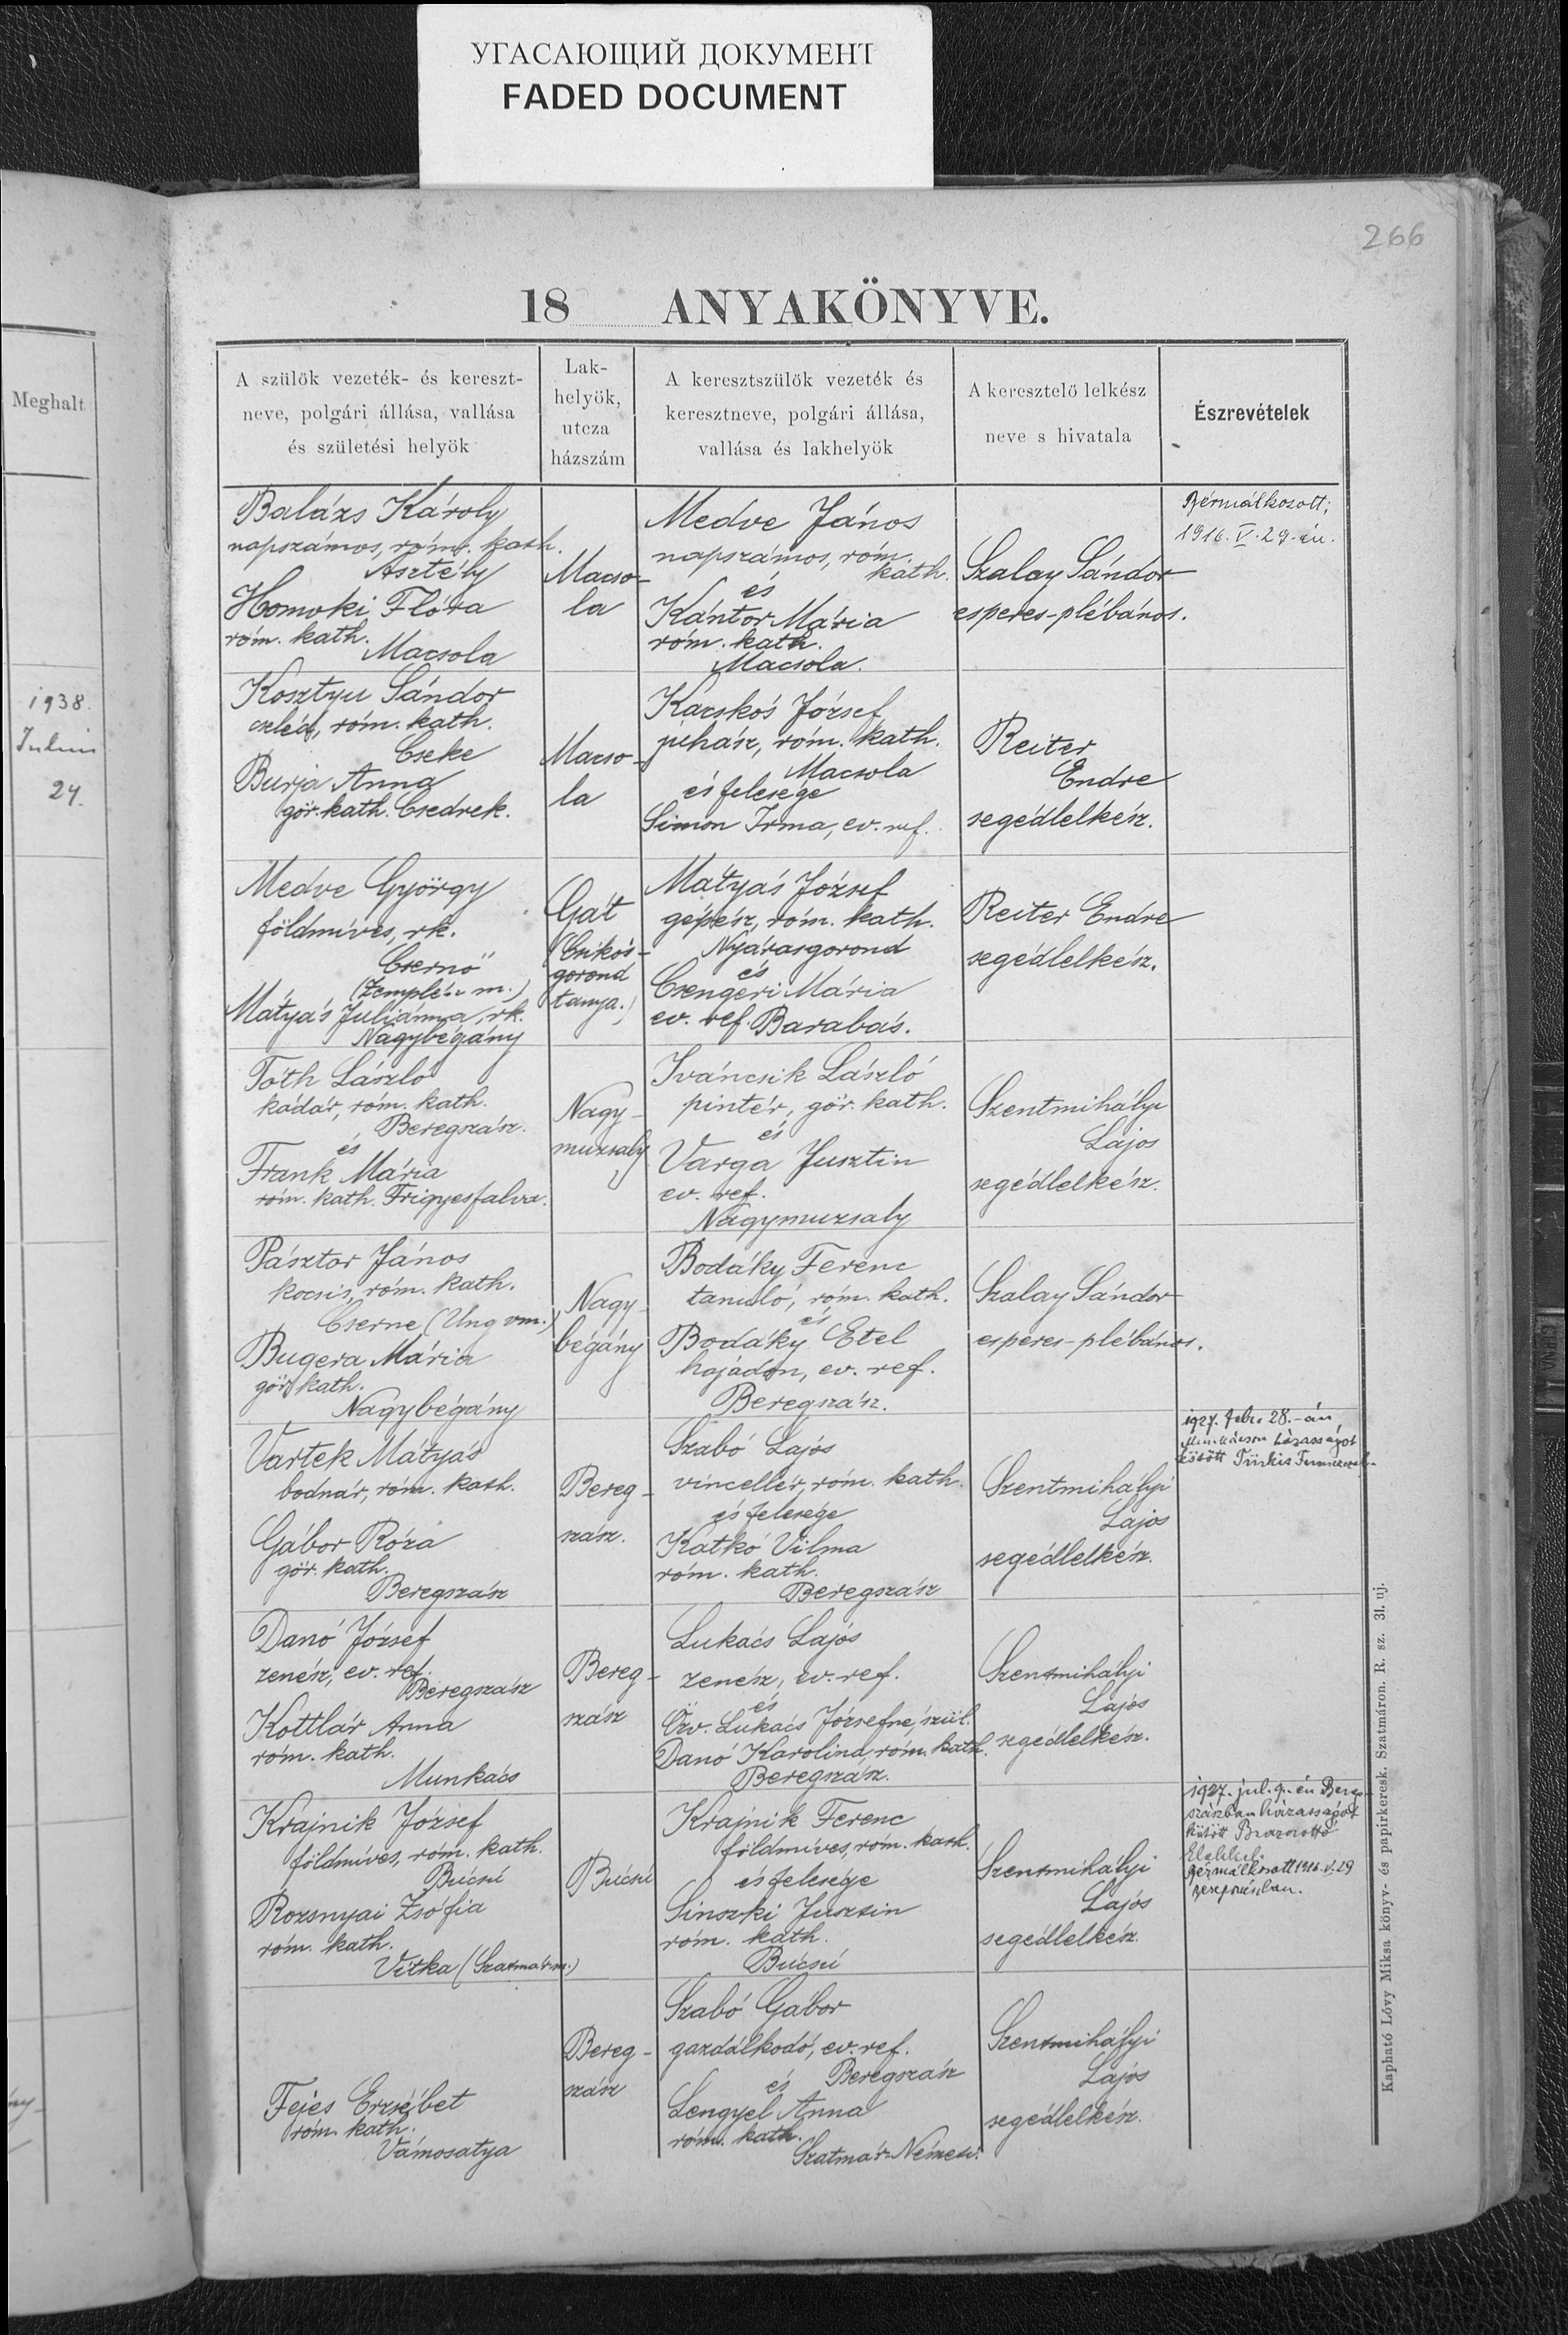 УГАСАЮЩИЙ ДОКУМЕНТ
FADED DOCUMENT
266
18 ANYAKÖNYVE.
Meghalt
1938.
Julius
24.
A szülők vezeték- és kereszt-
neve, polgári állása, vallása
és születési helyök
Lak-
helyök,
utcza
házszám
A keresztszülők vezeték és
keresztneve, polgári állása,
vallása és lakhelyök
A keresztelő lelkész
neve s hivatala
Észrevételek
Balázs Károly
napszámos, róm. kath.
Asztély
Homoki Flóra
róm. kath.
Macsola
Macso-
la
Medve János
napszámos, róm.
kath.
és
Kántor Mária
róm. kath.
Macsola.
Szalay Sándor
esperes-plébános.
Bérmálkozott;
1916. V. 29-én.
Kosztyu Sándor
cseléd, róm. kath.
Cseke
Burja Anna
gör. kath. Csedrek.
Macso-
la
Kacskós József
juhász, róm. kath.
Macsola
és felesége
Simon Irma, ev. ref.
Reiter
Endre
segédlelkész.
Medve György
földmíves, rk.
Csernő
(Zemplén m.)
Mátyás Juliánna, rk.
Nagybégány
Gát
(Csikós-
gorond
tanya.)
Mátyás József
gépész, róm. kath.
Nyárasgorond
és
Csengeri Mária
ev. ref. Barabás.
Reiter Endre
segédlelkész.
Tóth László
kádár, róm. kath.
Beregszász.
és
Frank Mária
róm. kath. Frigyesfalva.
Nagy-
muzsaly
Iváncsik László
pintér, gör. kath.
és
Varga Jusztin
ev. ref.
Nagymuzsaly
Szentmihályi
Lajos
segédlelkész.
Pásztor János
kocsis, róm. kath.
Cserne (Ung vm.)
Bugera Mária
gör. kath.
Nagybégány
Nagy-
bégány
Bodáky Ferenc
tanuló, róm. kath.
és
Bodáky Etel
hajádon, ev. ref.
Beregszász.
Szalay Sándor
esperes-plébános.
Vartek Mátyás
bodnár, róm. kath.
Gábor Róza
gör. kath.
Beregszász
Bereg-
szász.
Szabó Lajos
vincellér, róm. kath.
és felesége
Katkó Vilma
róm. kath.
Beregszász
Szentmihályi
Lajos
segédlelkész.
1927. febr. 28.-án
Munkácson házasságot
kötött
Danó József
zenész, ev. ref.
Beregszász
Kottlár Anna
róm. kath.
Munkács
Bereg-
szász
Lukács Lajos
zenész, ev. ref.
és
Özv. Lukács Józsefné, szül.
Danó Karolina, róm. kath.
Beregszász.
Szentmihályi
Lajos
segédlelkész.
Krajnik József
földmíves, róm. kath.
Búcsú
Rozsnyai Zsófia
róm. kath.
Vitka (Szatmár m.)
Búcsú
Krajnik Ferenc
földmíves, róm. kath.
és felesége
Sinszki Jusztin
róm. kath.
Búcsú
Szentmihályi
Lajos
segédlelkész.
1927. jul. 9.-én Bereg-
szászban házasságot
kötött
bérmálkozott 1916. V. 29
Beregszászban.
Fejes Erzsébet
róm. kath.
Vámosatya
Bereg-
szász
Szabó Gábor
gazdálkodó, ev. ref.
és Beregszász
Lengyel Anna
róm. kath.
Szatmár-Németi.
Szentmihályi
Lajos
segédlelkész.
Kapható Lővy Miksa könyv- és papirkeresk. Szatmáron. R. sz. 31. uj.